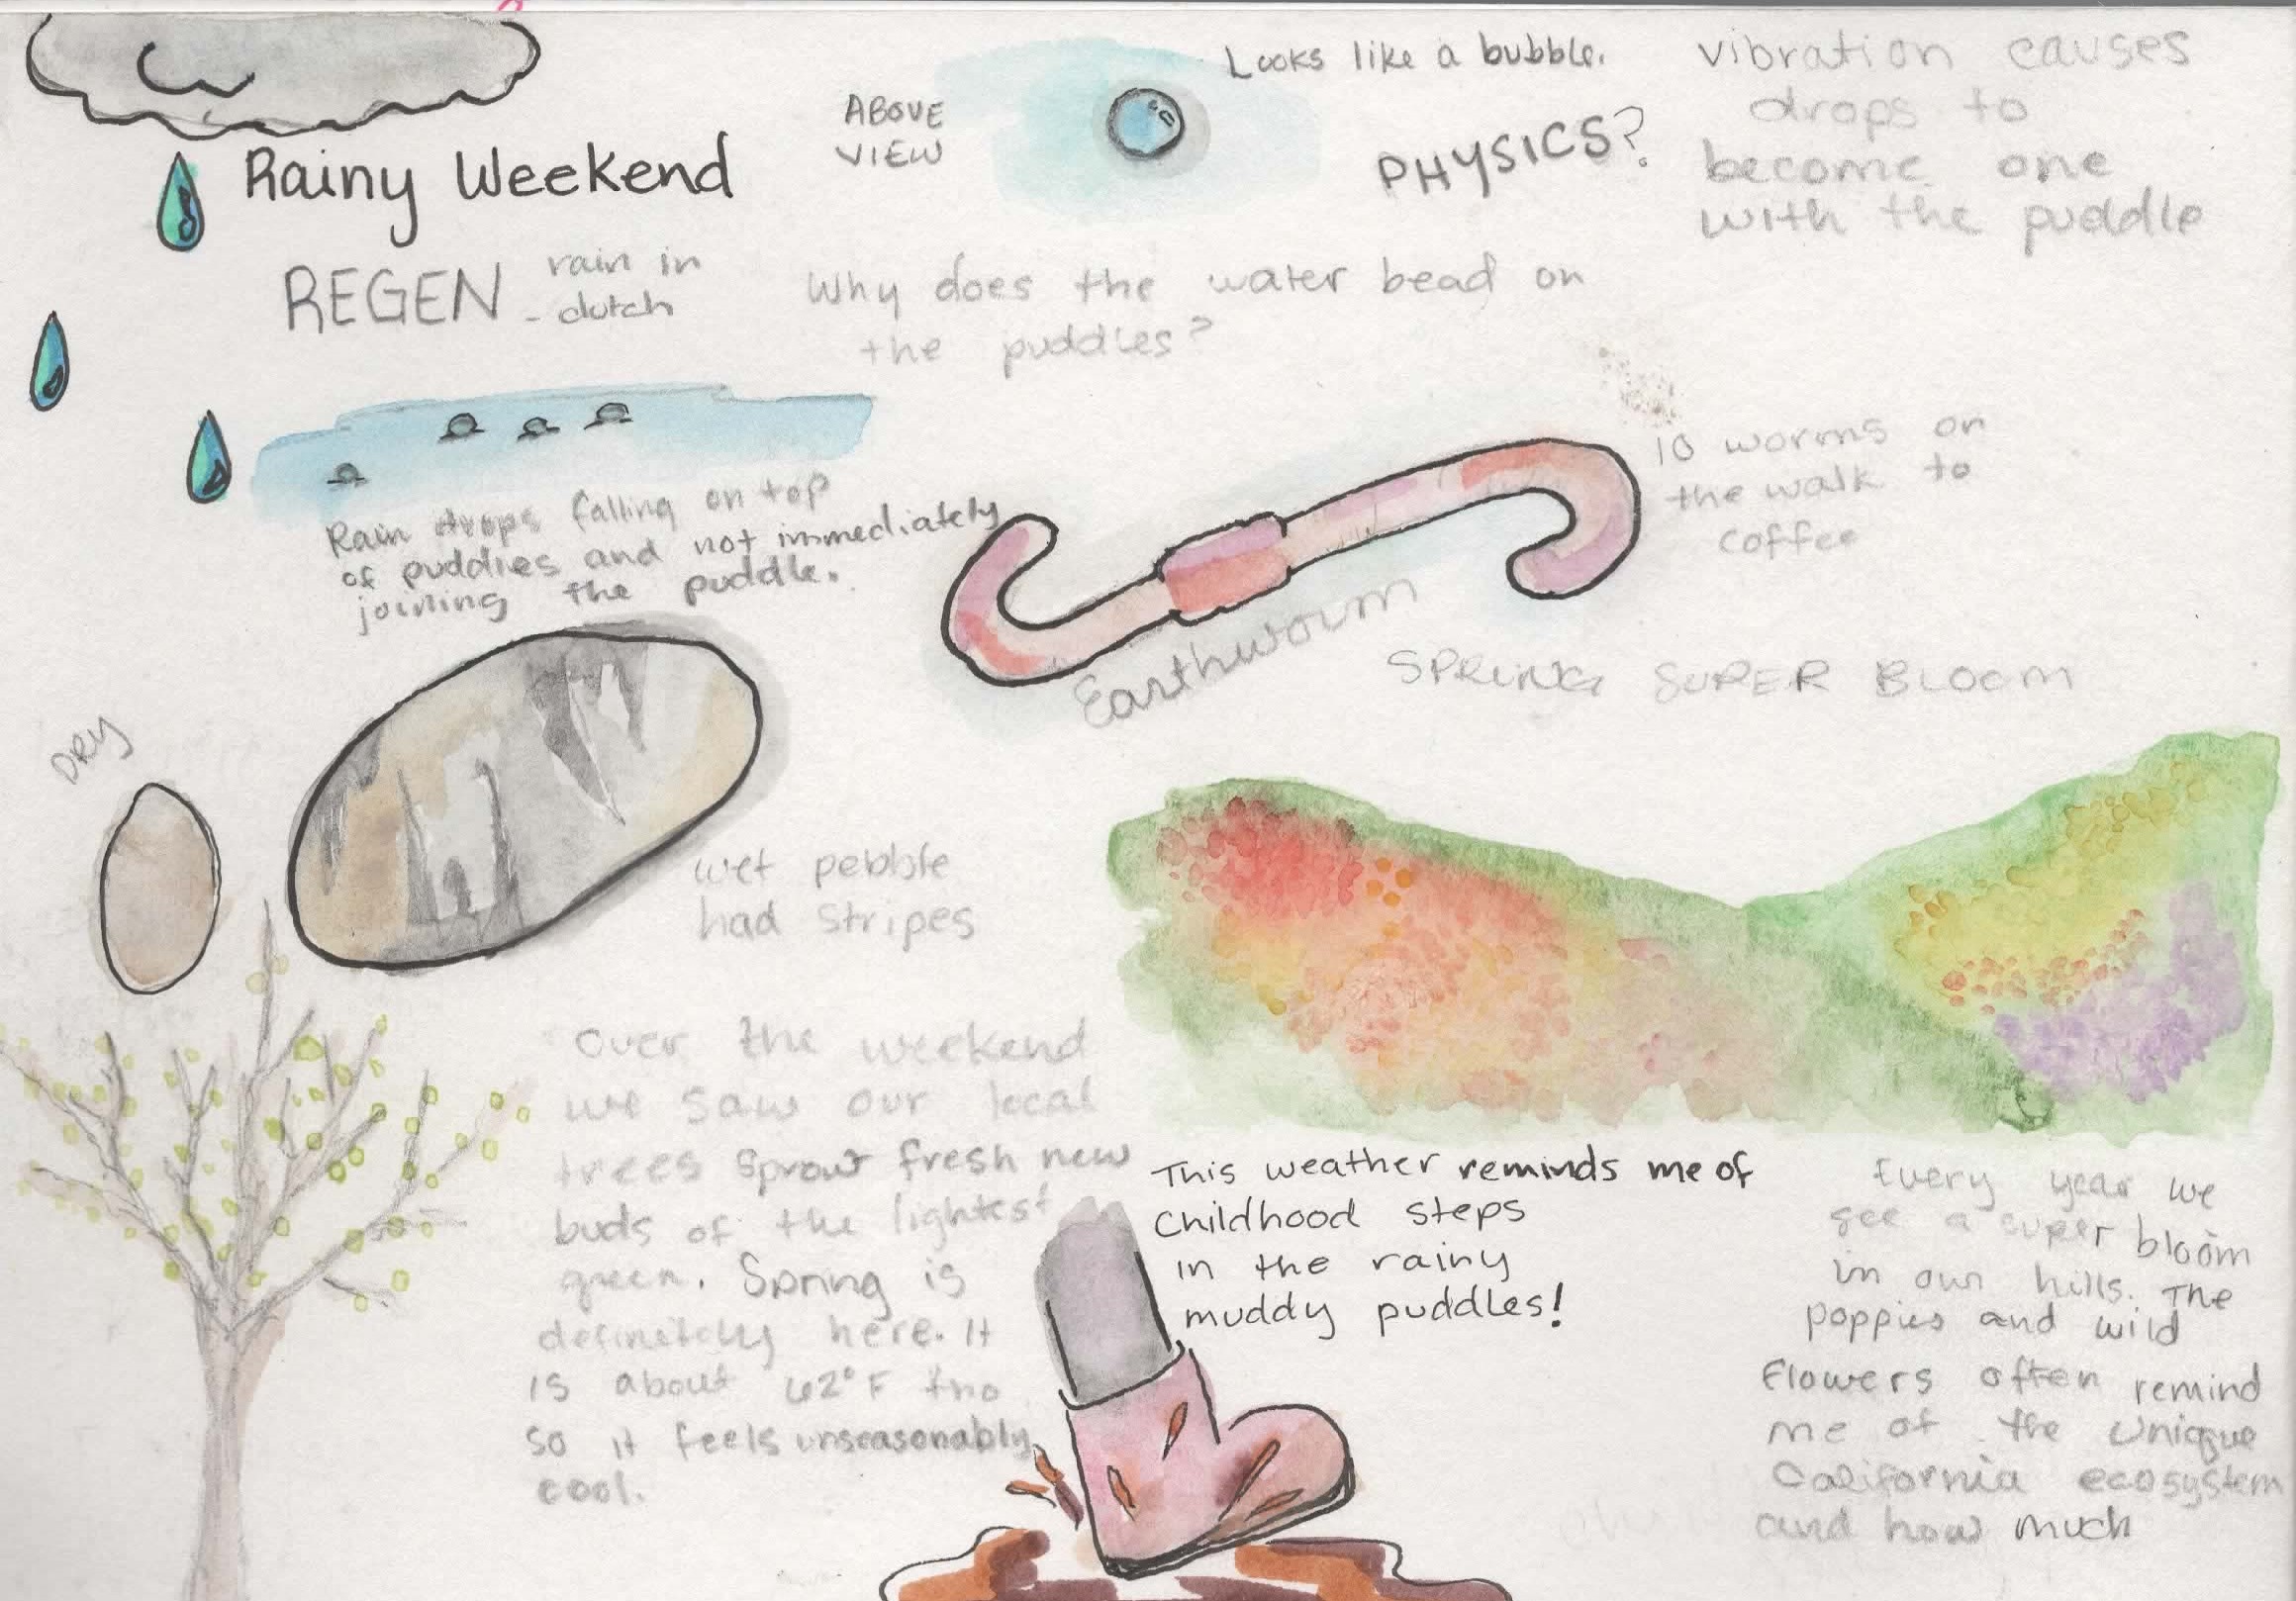 Rainy Weekend
REGEN - rain in
dutch
ABOVE
VIEW
Looks like a bubble.
PHYSICS?
vibration causes
drops to
become one
with the puddle
Why does the water bead on
the puddles?
Rain drops falling on top
of puddles and not immediately
joining the puddle.
10 worms on
the walk to
coffee
Earthworm
SPRING SUPER BLOOM
DRY
wet pebble
had stripes
Over the weekend
we saw our local
trees sprout fresh new
buds of the lightest
green. Spring is
definitely here. It
is about 62°F tho
so it feels unseasonably
cool.
This weather reminds me of
childhood steps
in the rainy
muddy puddles!
Every year we
see a super bloom
in our hills. The
poppies and wild
flowers often remind
me of the unique
California ecosystem
and how much